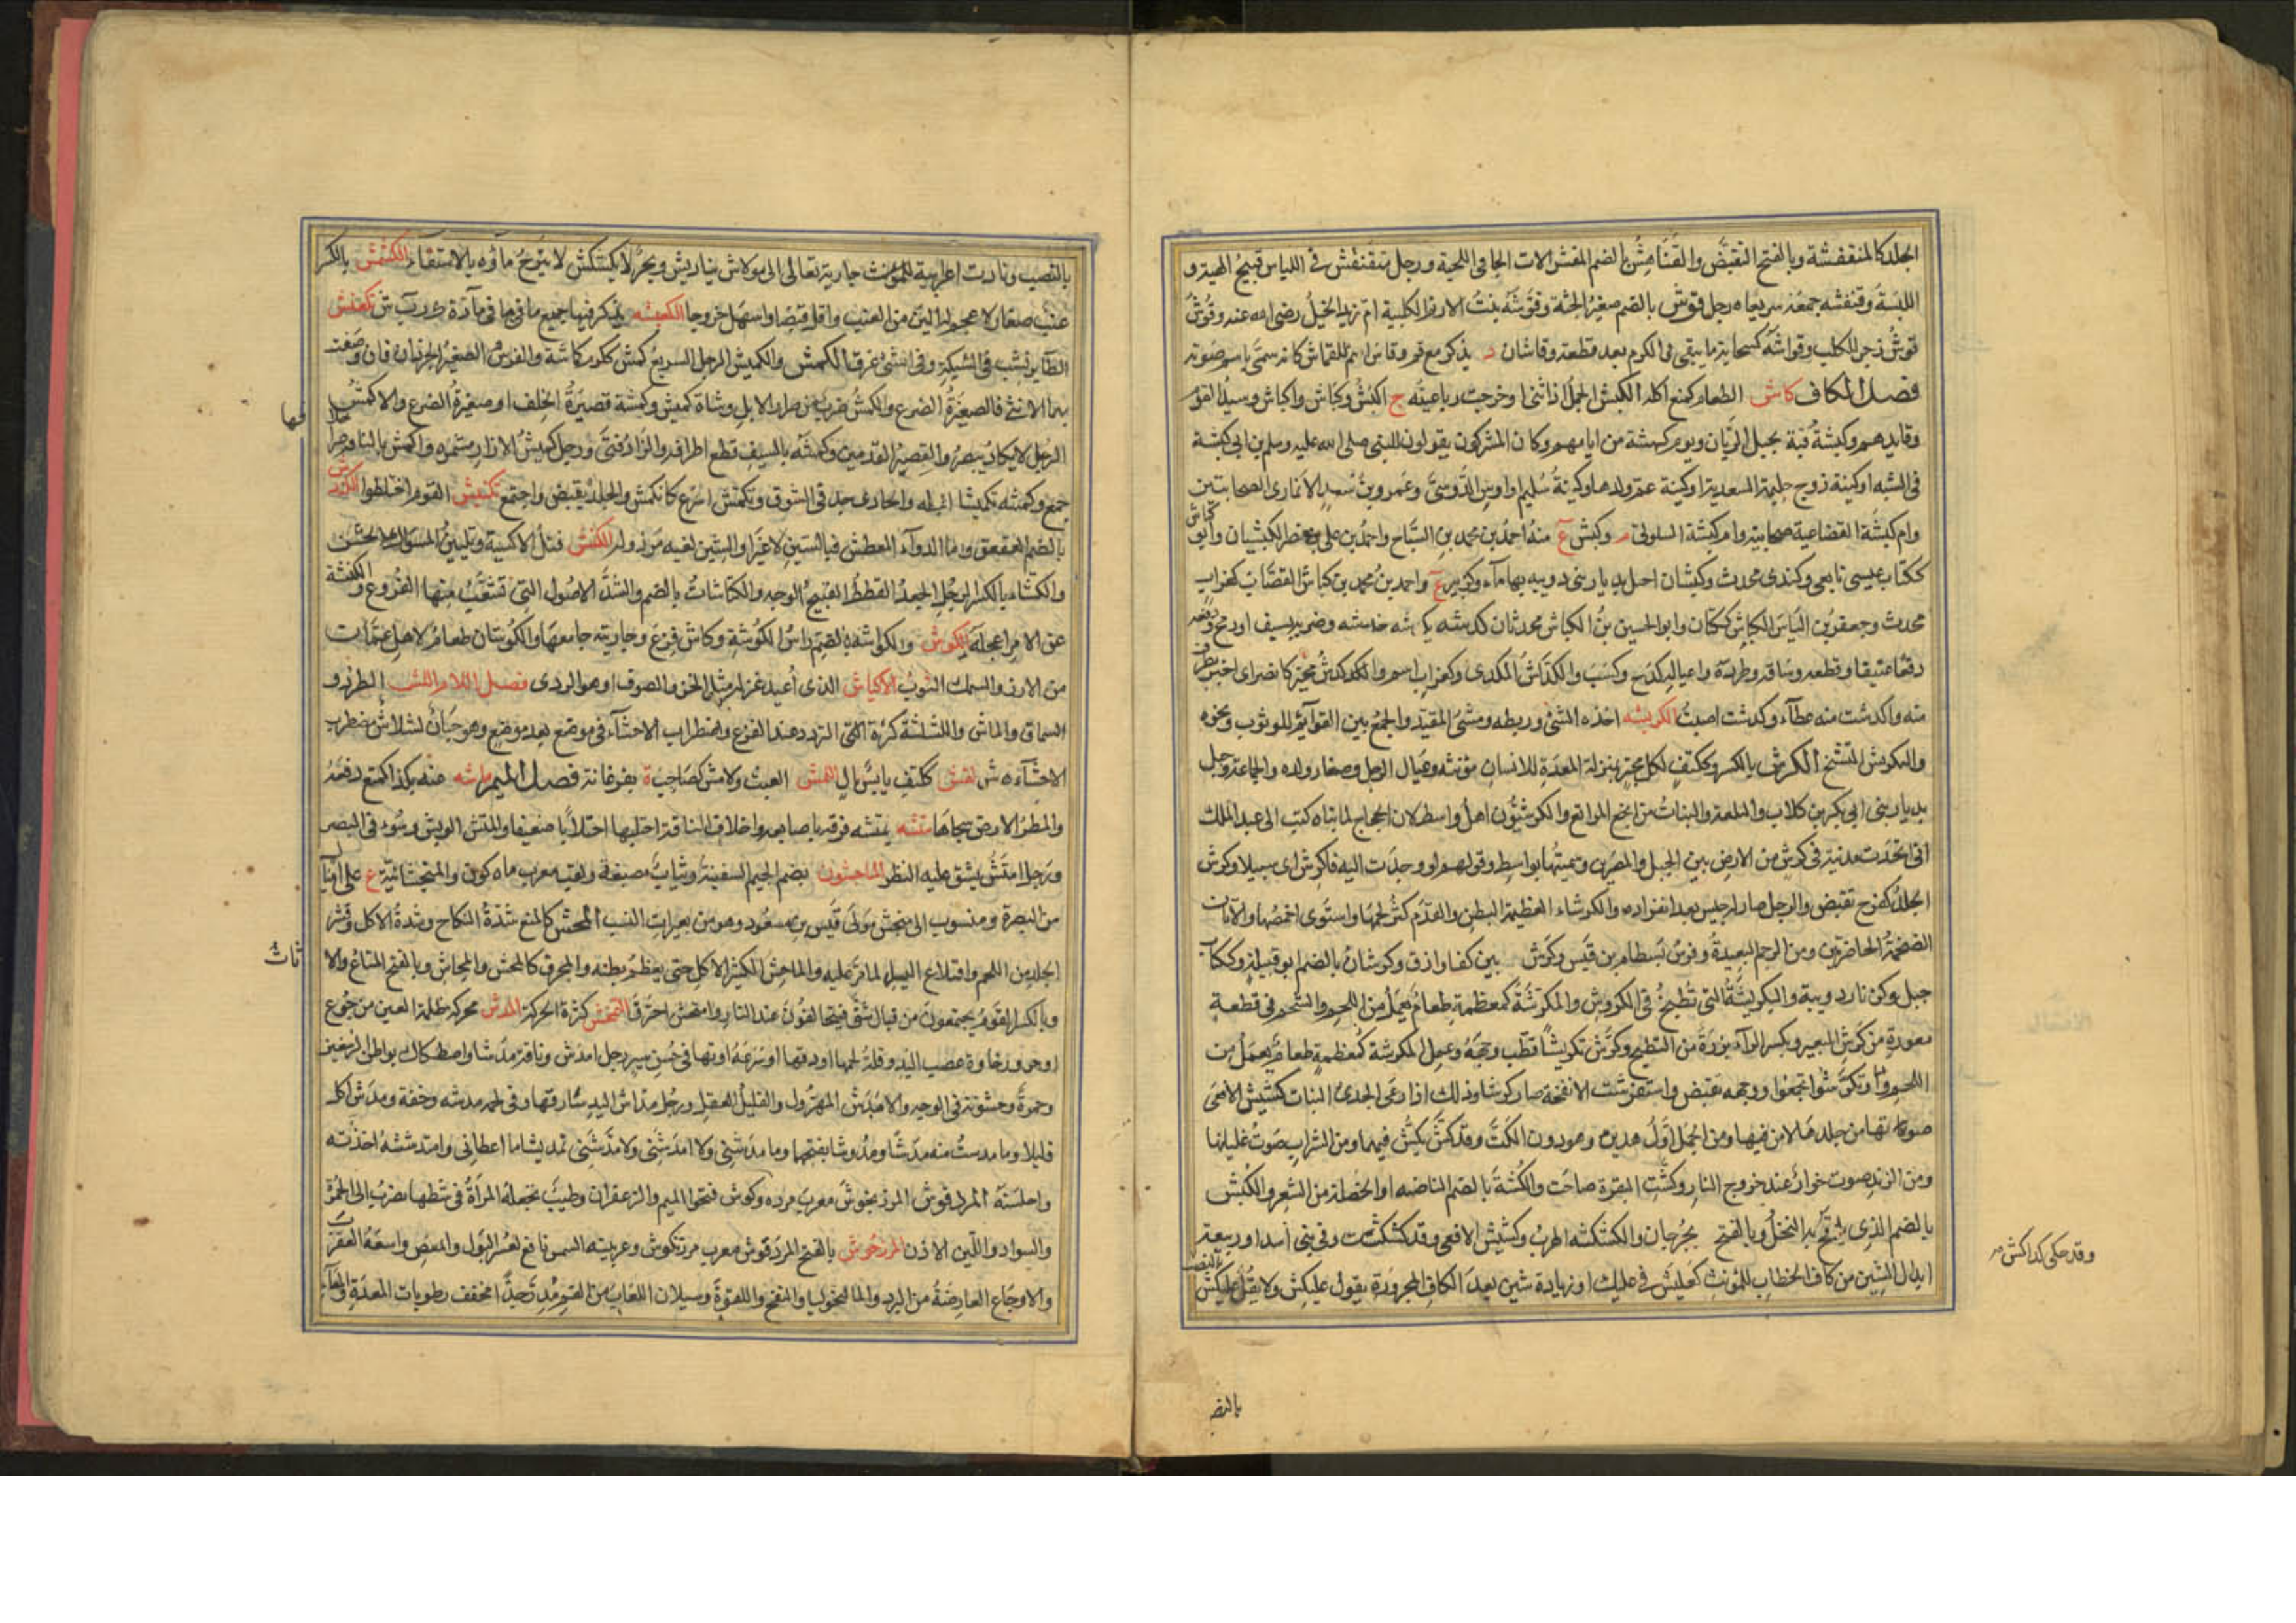 الجلد كالمتقفشة وبالفتح التقبّض والقُنافِش بالضم المقش الات الجافى اللحية ورجل متقنفش فى اللباس قبيح الهيئة و
اللبسة وقنفشه جمعه سريعا ه رجل قوش بالضم صغير الجثة وقوشة بنت الازهر الكلبية ام زيد الخيل رضى الله عنه وقوش
قوش زجر للكلب وقواشة كسحابة ما يبقى فى الكرم بعد قطعه وقاشان د يذكر مع قم وقاش اسم للقماش كانه سمى باسم صوته
فصل الكاف كاش الطعام كمنع اكله الكبش الحمل اذا اثنى او خرجت رباعيته ج اكبش وكباش واكباش وسيد القوم
وقايدهم وكبشة قنة بجبل الريان ويوم كبشة من ايامهم وكان المشركون يقولون للنبى صلى الله عليه وسلم بن ابى كبشة
فى الشبه او كنية زوج حليمة السعدية او كنية عم ولدها وكنية سليم او اوس الدوسى وعمرو بن سعد الانمارى الصحابيين
وام كبشة القضاعية صحابية وام كبشة السلولى وكبش ع منه احمد بن محمد بن السباح واحمد بن على بن نصر الكبشيان وابو كباش
ككتاب عيسى تابعى وكندى محدث وكبشان اجبل بديار بنى دويبه بها ماء وكزبير ع واحمد بن محمد بن كباش القصاب كغراب
محدث وجعفر بن الياس الكباش ككتان وابو الحسين بن الكباش محدثان كدشه يكدشه خدشه وضربه بسيف او رمح ودفعه
دفعا عنيفا وقطعه وساقه وطرده واعياله كدح وكسب والكداش المكدى وكغراب اسم والكدكدش
منه واكدشت منه عطاء وكدشت اصبت الكربشه اخذه الشئ وربطه ومشى المقيد والجمع بين القوائم للوثوب ونحوه
والتكربش التشنج الكرش بالكسر وككتف لكل مجتر بمنزلة المعدة للانسان مؤنثه وعيال الرجل وصغار ولده والجماعة وجبل
بديار بنى ابى بكر بن كلاب والنبات من انجع المراتع والكرشيون اهل واسط لان الحجاج لما بناه كتب الى عبد الملك
انى اتخذت مدينة فى كرش من الارض بين الجبل والمصرين وسميتها بواسط وقولهم لو وجدت اليه فا كرش اى سبيلا وكرش
الجلد كفرح تقبض والرجل صار له جيش بعد انفراده والكرشاء العظيمة البطن والقدم كثر لحمها واستوى اخمصها والاتان
الضخمة الخاصرتين ومن الرحم البعيدة وفرس بسطام بن قيس وكرش بين كفا وازق وكرشان بالضم ابو قبيلة وككتاب
جبل وكزنار دويبة والتكريشة التى تطبخ فى الكروش والمكرشة كمعظمة طعام يعمل من اللحم والشحم فى قطعة
مقورة من كرش البعير وبكسر الراء بزرة من البطيخ وكرش تكريشا قطب وجهه وعمل المكرشة كمعظمة طعام يعمل من
اللحم وتكرشوا تجمعوا ووجهه تقبض واستكرشت الانفحة صار كرشا وذلك اذا رعى الجدى النبات كشيش الافعى
صوتها من جلدها لا من فيها ومن الجمل اول هديره وهو دون الكت وقد كش يكش فيهما ومن الشراب صوت غليانه
ومن الزند صوت خوار عند خروج النار وكشت البقرة صاحت والكشة بالضم الناصية او الخصلة من الشعر والكش
بالضم الذى يلقح به النخل وبالفتح بجرجان والكشكشه الهرب وكشيش الافعى وقد كشكشت وفى بنى اسد او ربيعة
ابدال الشين من كاف الخطاب للمؤنث كعليش فى عليك او زيادة شين بعد الكاف المجرورة يقول عليكش ولا يقل عليكش بالنصب
وقد حكى كذاكش
بالنصب
بالنصب ونادت اعرابية للمؤنث جارية تعالى الى مولاش يناديش وبحر لا يكشكش لا ينزح ماؤه بالاستقاء الكشمش بالكسر
عنب صغار لا عجم له الين من العنب واقل قبضا واسهل خروجا تكعنش
الطاير نشب فى الشبكة وفى الشئ غرق الكمش والكميش الرجل السريع كمش ككرم كماشة والفرس الصغير الجردان فان وصفت
بها الانثى فالصغيرة الضرع والكمش ضرب من صرار الابل وشاة كميش وكمشة قصيرة الخلف او صغيرة الضرع والاكمش
الرجل لا يكاد يبصر والقصير القدمين وكمشه بالسيف قطع اطرافه والزاد فنى ورجل كميش الازار مشمره واكمش بالناقة صرّ
جمع وكمشه تكميشا اعجله والحادى جد فى السوق وتكمش اسرع كانكمش والجلد تقبض واجتمع تكنبش القوم اختلطوا
بالضم العقعق
والكنشاء بالكسر الرجل الجعد القطط القبيح الوجه والكناشات بالضم والشد الاصول التى تتشعب منها الفروع والكنشة
عن الامر اعجله الكوش والكواشه بالضم راس الكوشلة وكاش فزع وجاريته جامعها والكوشان طعام لاهل عمان
من الارز والسمك الثوب الاكياش الذى اعيد غزله مثل الخز والصوف او هو الردى فصل اللام اللش الطرد و
السماق والماش واللشلشة كثرة التردد عند الفزع واضطراب الاحشاء فى موضع بعد موضع وهو جبان لشلاش مضطرب
الاحشاء اللمش العبث ولامش كصاحب ة بفرغانة فصل الميم ماشه عنه بكذا كمنع دفعه
والمطر الارض سحاها متشه يمتشه فرقه باصابعه واخلاف الناقة احتلبها احتلابا ضعيفا والمتش الوبش وسوء فى البصر
ورجل امتش يشق عليه النظر الماجشون بضم الجيم السفينة وثياب مصبغة ولقب معرب ماه كون والمنجشانية ع على اميال
من البصرة ومنسوب الى منجش مولى قيس بن مسعود وهو من تغييرات النسب المحش كالمنع شدة النكاح وشدة الاكل وقشر
الجلد من اللحم واقتلاع السيل لما مر عليه والماحش الكثير الاكل حتى يعظم بطنه والمحرق كالمحش والمحاش بالفتح المتاع والاثاث
وبالكسر القوم يجتمعون من قبائل شتى فيتحالفون عند النار وامتحش احترق التمخش كثرة الحركة المدش محركة ظلمة العين من جوع
او حر ورخاوة عصب اليد وقلة لحمها او دقتها او سرعة اوبها فى حسن سير رجل امدش وناقة مدشا واصطكاك بواطن الرسغين
وحمرة وخشونة فى الوجه والامدش المهزول والقليل العقل ورجل مداش اليد سارقها وفى لحمه مدشه وخفة ومدش اكل
قليلا وما مدشت منه مدشا ومدوشا بفتحهما وما مدشنى ولا امدشنى ولا مدشنى تمديشا ما اعطانى وامتدشته اخذته
واختلسته المردقوش المرزنجوش معرب مرده كوش فتحوا الميم والزعفران وطيب تجعله المراة فى مشطها يضرب الى الحمرة
والسواد واللين الاذن المرزجوش بالفتح المردقوش معرب مرزنكوش وعربيته السمسق نافع لعسر البول والمغص ولسعة العقرب
والاوجاع العارضة من البرد والماليخوليا والنفخ واللقوة وسيلان اللعاب من الفم مدر جدا مجفف رطوبات المعدة والامعاء